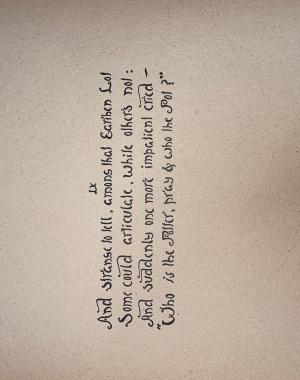 LX
And strange to tell, among that Earthen Lot
Some could articulate, while others not:
And suddenly one more impatient cried —
"Who is the Potter, pray, & who the Pot?"